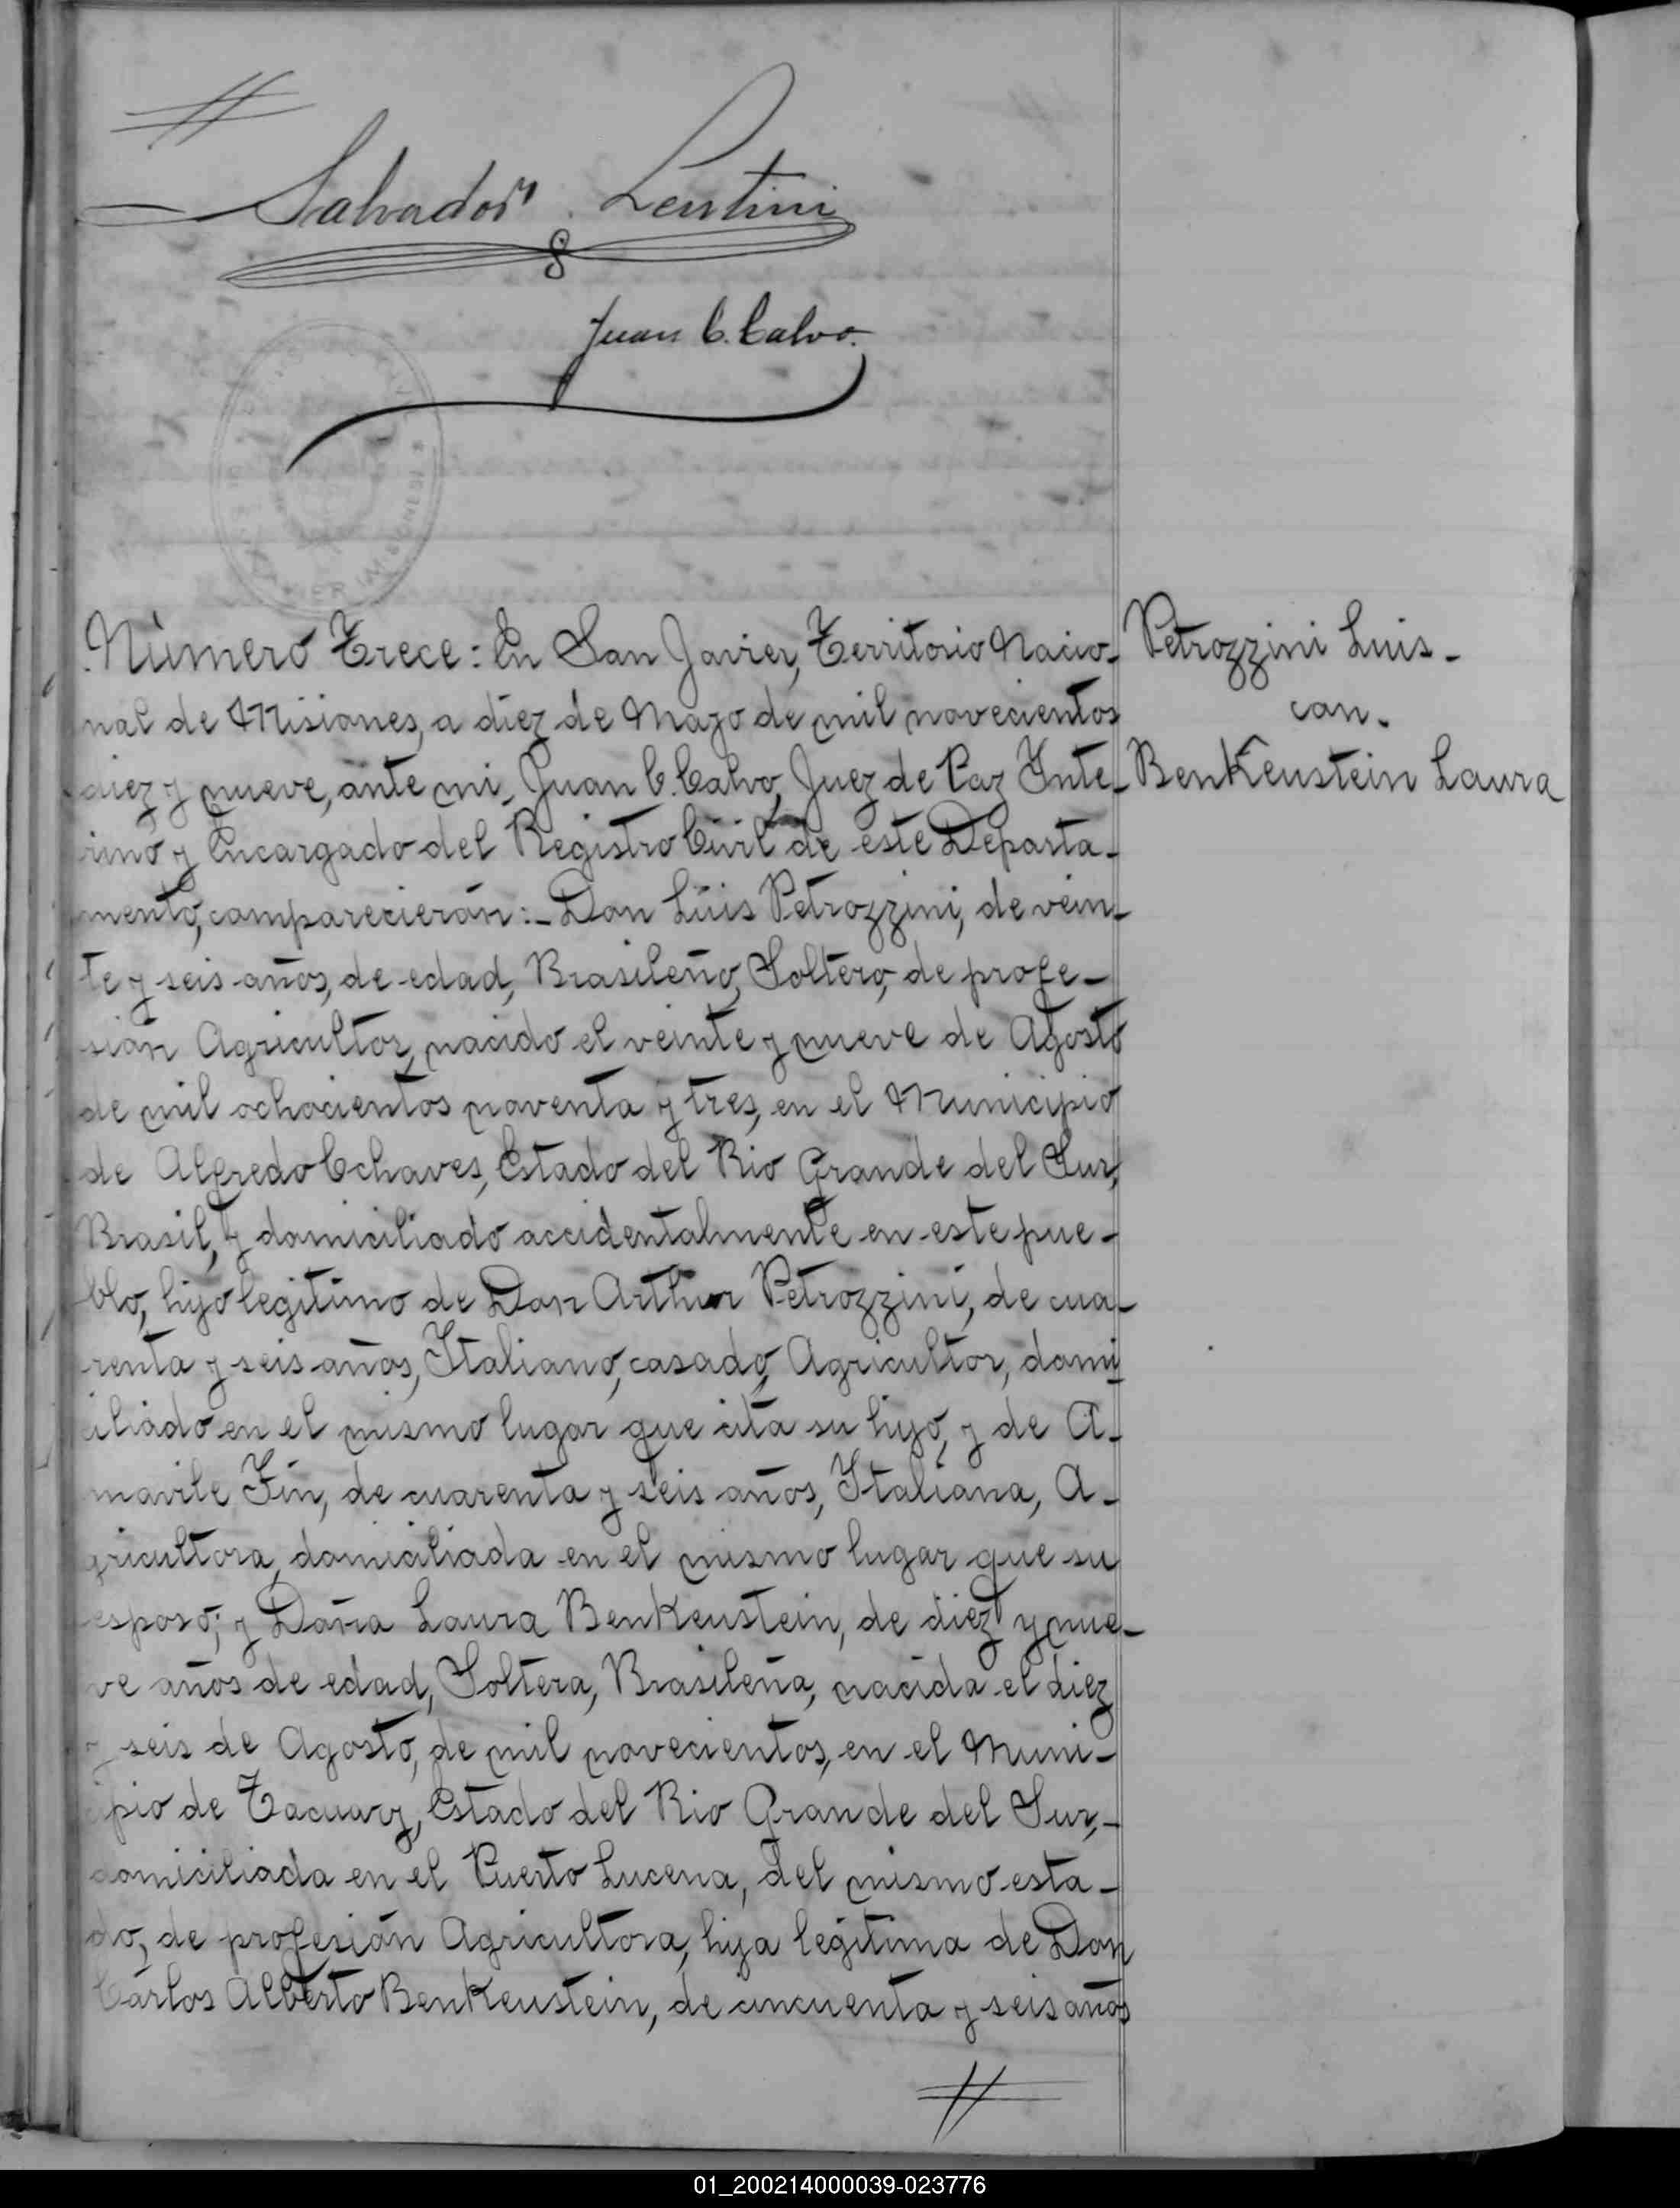 Salvador Lentini
Juan C. Calvo.
Número Trece: En San Javier, Territorio Nacio-
nal de Misiones, a diez de Mayo de mil novecientos
diez y nueve, ante mi, Juan C. Calvo, Juez de Paz Inte-
rino y Encargado del Registro Civil de este Departa-
mento, comparecieron:- Don Luis Petrozzini, de vein-
te y seis años, de edad, Brasileño, Soltero, de profe-
sión Agricultor, nacido el veinte y nueve de Agosto
de mil ochocientos noventa y tres, en el Municipio
de Alfredo Cchaves, Estado del Rio Grande del Sur,
Brasil, y domiciliado accidentalmente en este pue-
blo, hijo legitimo de Don Arthur Petrozzini, de cua-
renta y seis años, Italiano, casado, Agricultor, domi
ciliado en el mismo lugar que cita su hijo, y de A-
mavile Fin, de cuarenta y seis años, Italiana, A-
gricultora, domiciliada en el mismo lugar que su
esposo; y Doña Laura Benkenstein, de diez y nue-
ve años de edad, Soltera, Brasileña, nacida el diez
y seis de Agosto, de mil novecientos, en el Muni-
cipio de Tacuary, Estado del Rio Grande del Sur,-
domiciliada en el Puerto Lucena, del mismo esta-
do, de profesión Agricultora, hija legitima de Don
Carlos Alberto Benkenstein, de cincuenta y seis años
Petrozzini Luis-
con-
Benkenstein Laura
01_200214000039-023776